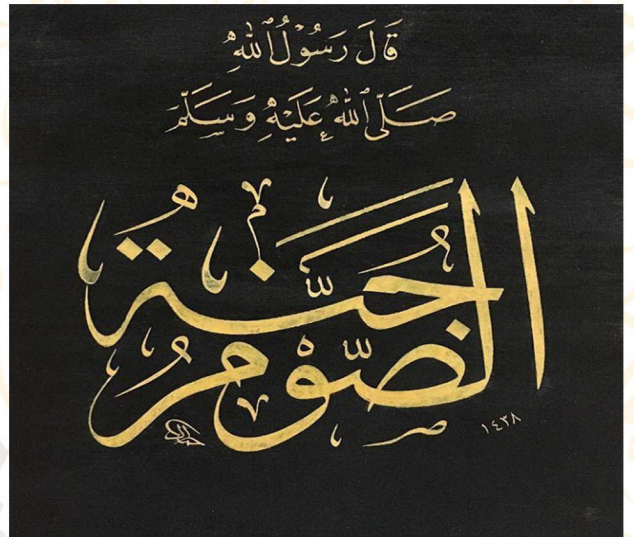 قَالَ رَسُوْلُ ٱللهِ
صَلَّى ٱللهُ عَلَيْهِ وَسَلَّمَ
الصَّوْمُ جُنَّةٌ
١٤٣٨